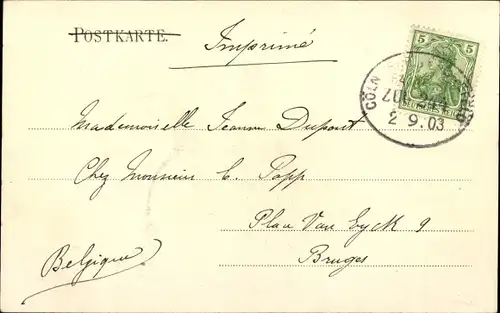 POSTKARTE.
Imprimé
5
CÖLN
ZUG
2 9.03
Mademoiselle Jeanne Dupont
Chez Monsieur C. Popp
Place Van Eyck 9
Bruges
Belgique